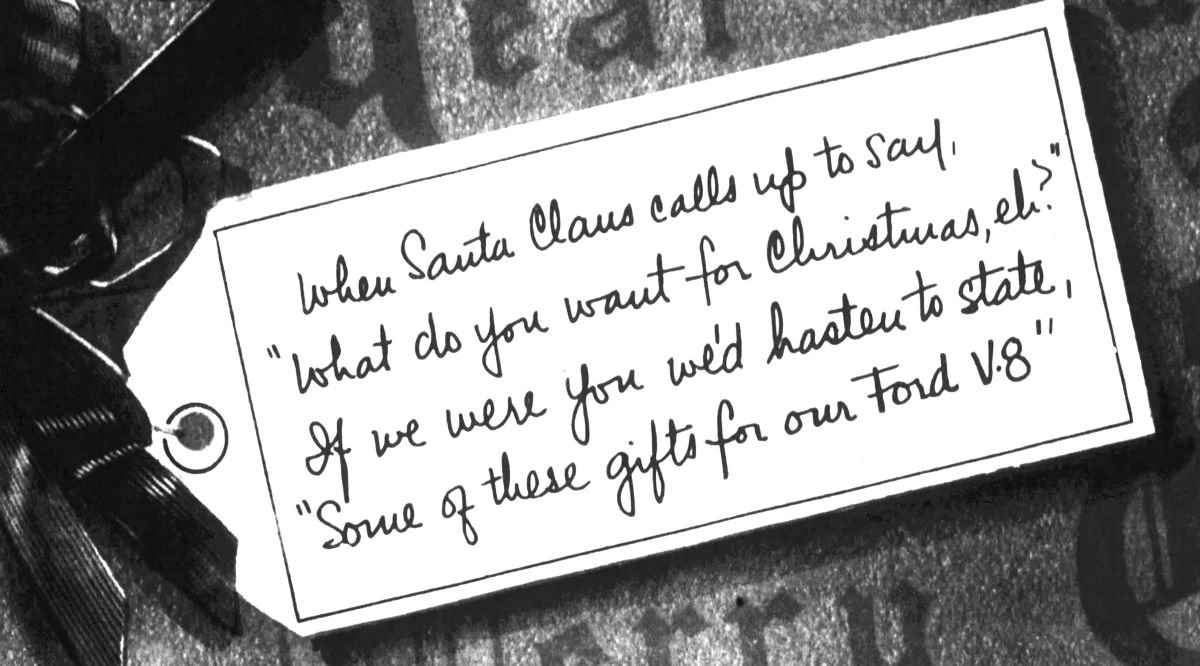 ear
When Santa Claus calls up to say,
"What do you want for Christmas, eh?"
If we were you we'd hasten to state,
"Some of these gifts for our Ford V·8"
erry